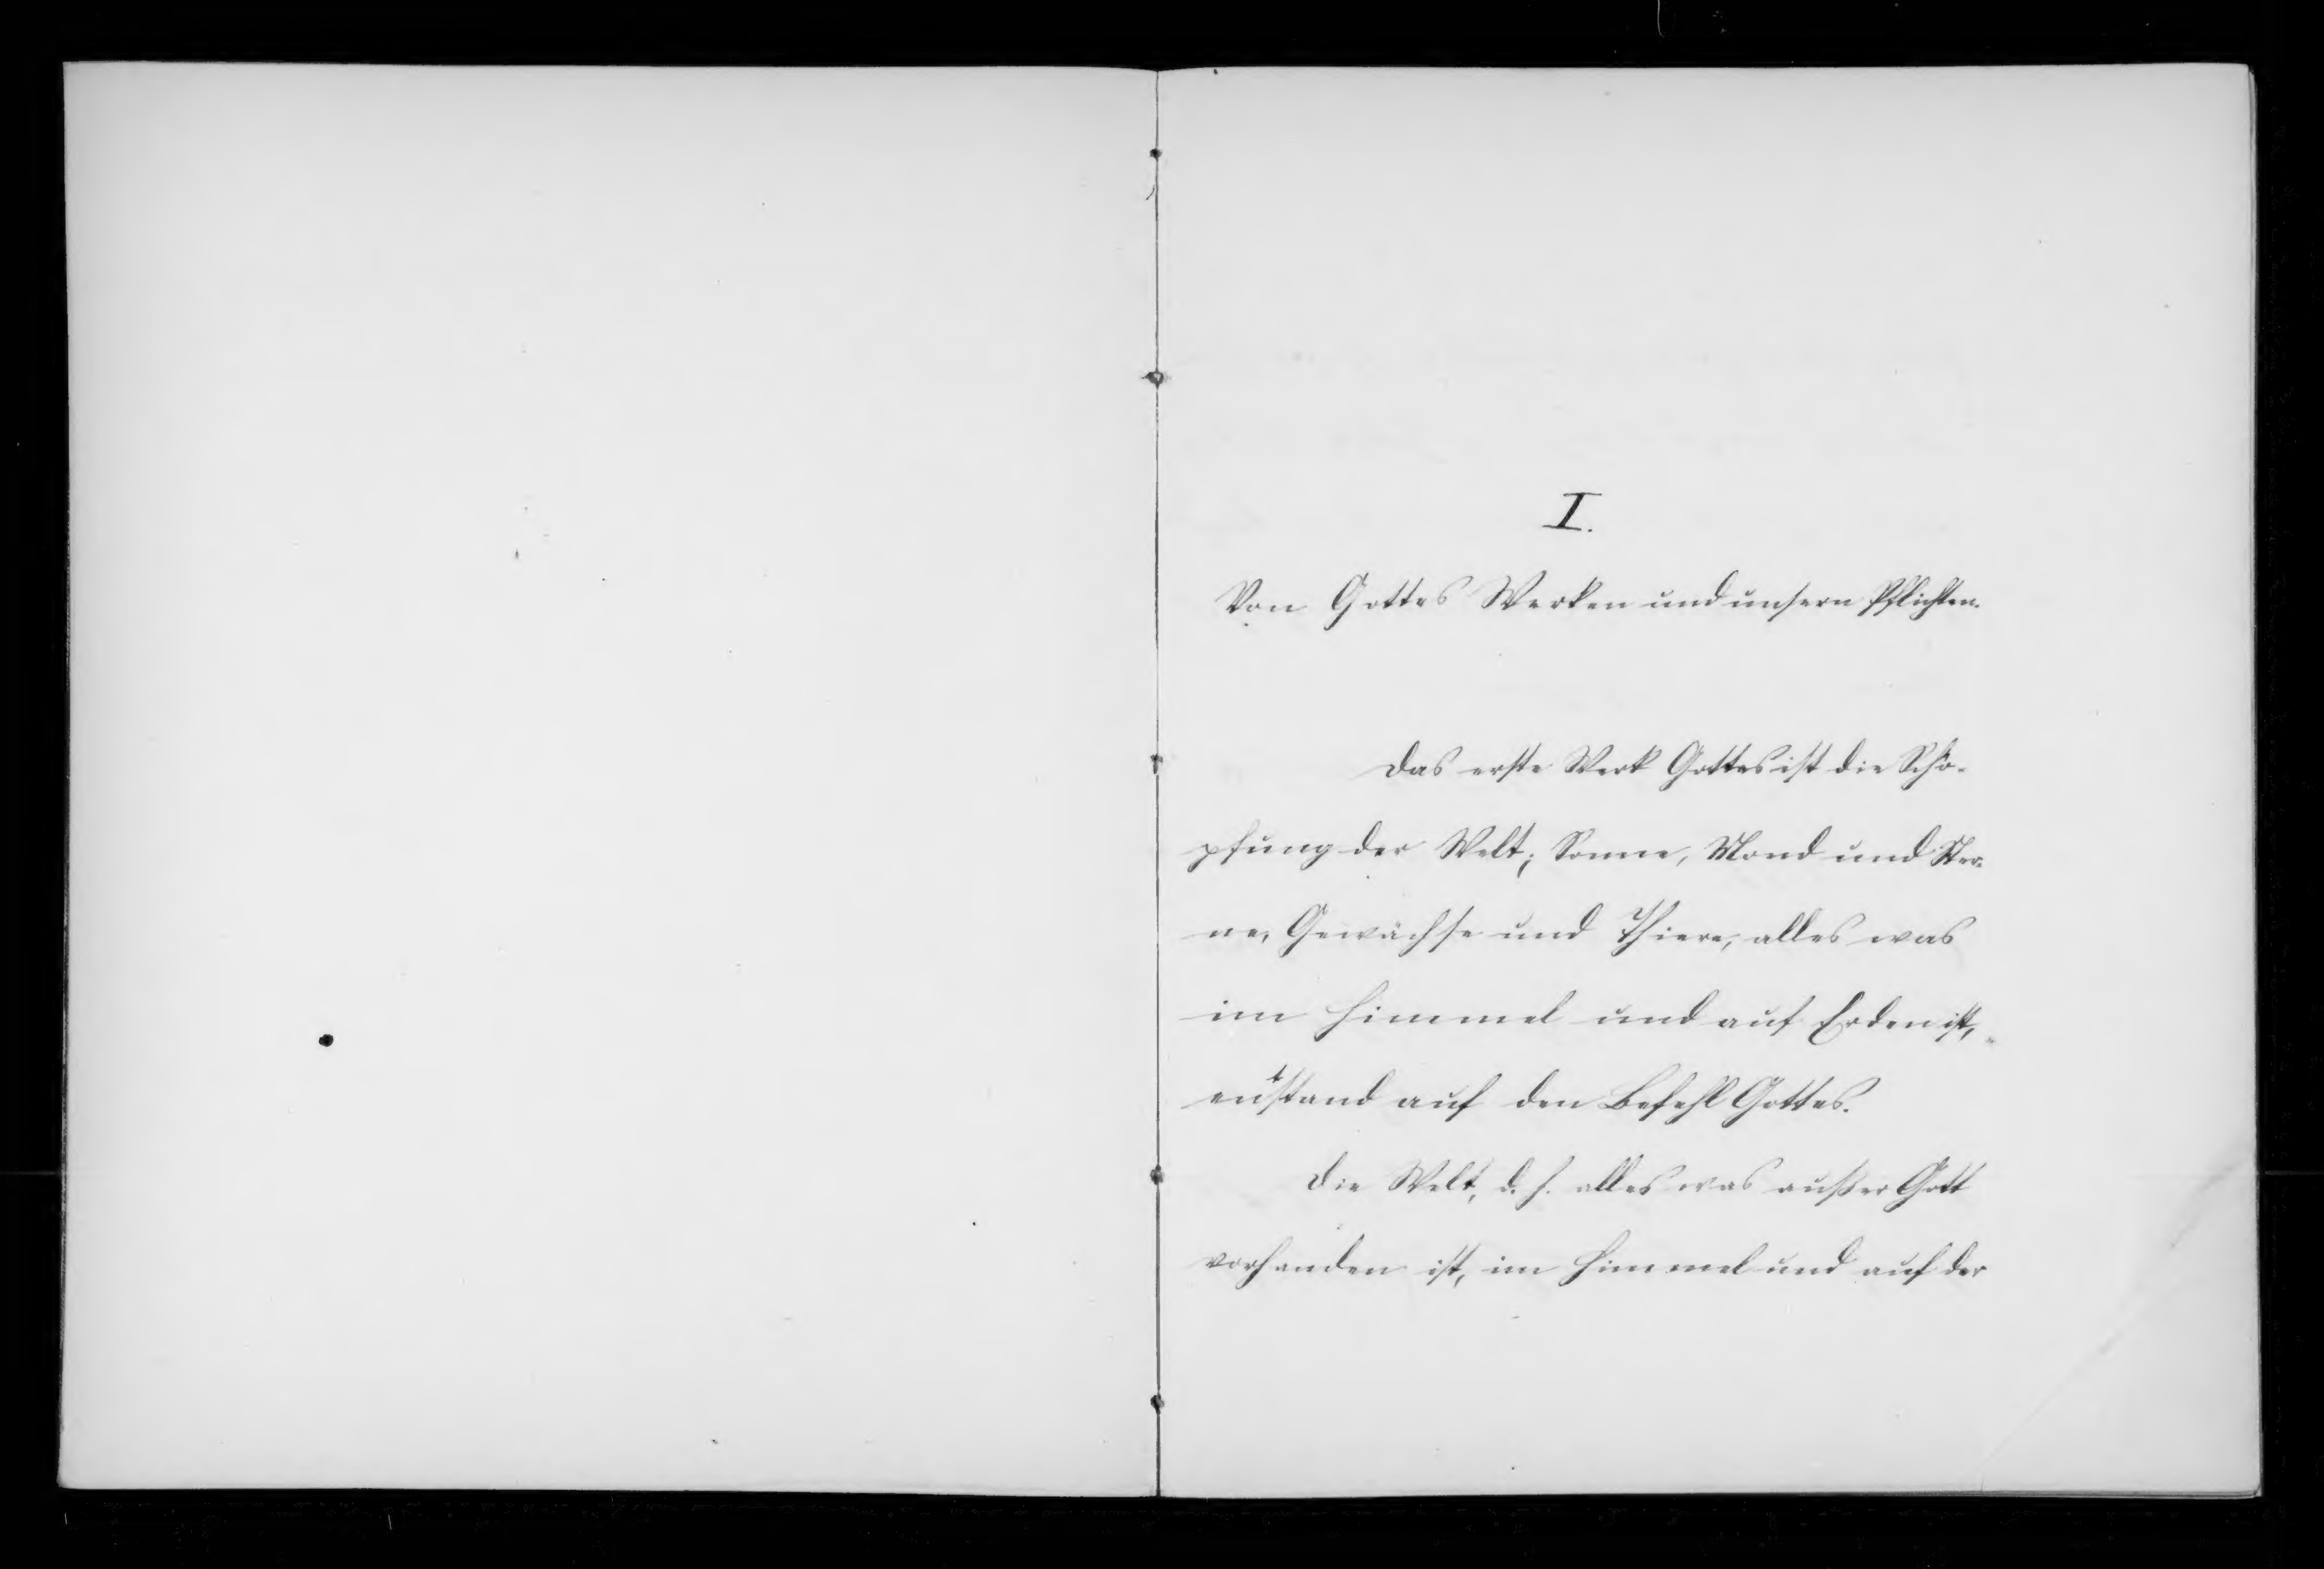 I.
Von Gottes Werken und unsern Pflichten.
Das erste Werk Gottes ist die Schö-
pfung der Welt; Sonne, Mond und Ster-
ne, Gewächse und Thiere, alles was
im Himmel und auf Erden ist,
entstand auf den Befehl Gottes.
Die Welt, d. h. alles was außer Gott
vorhanden ist, im Himmel und auf der